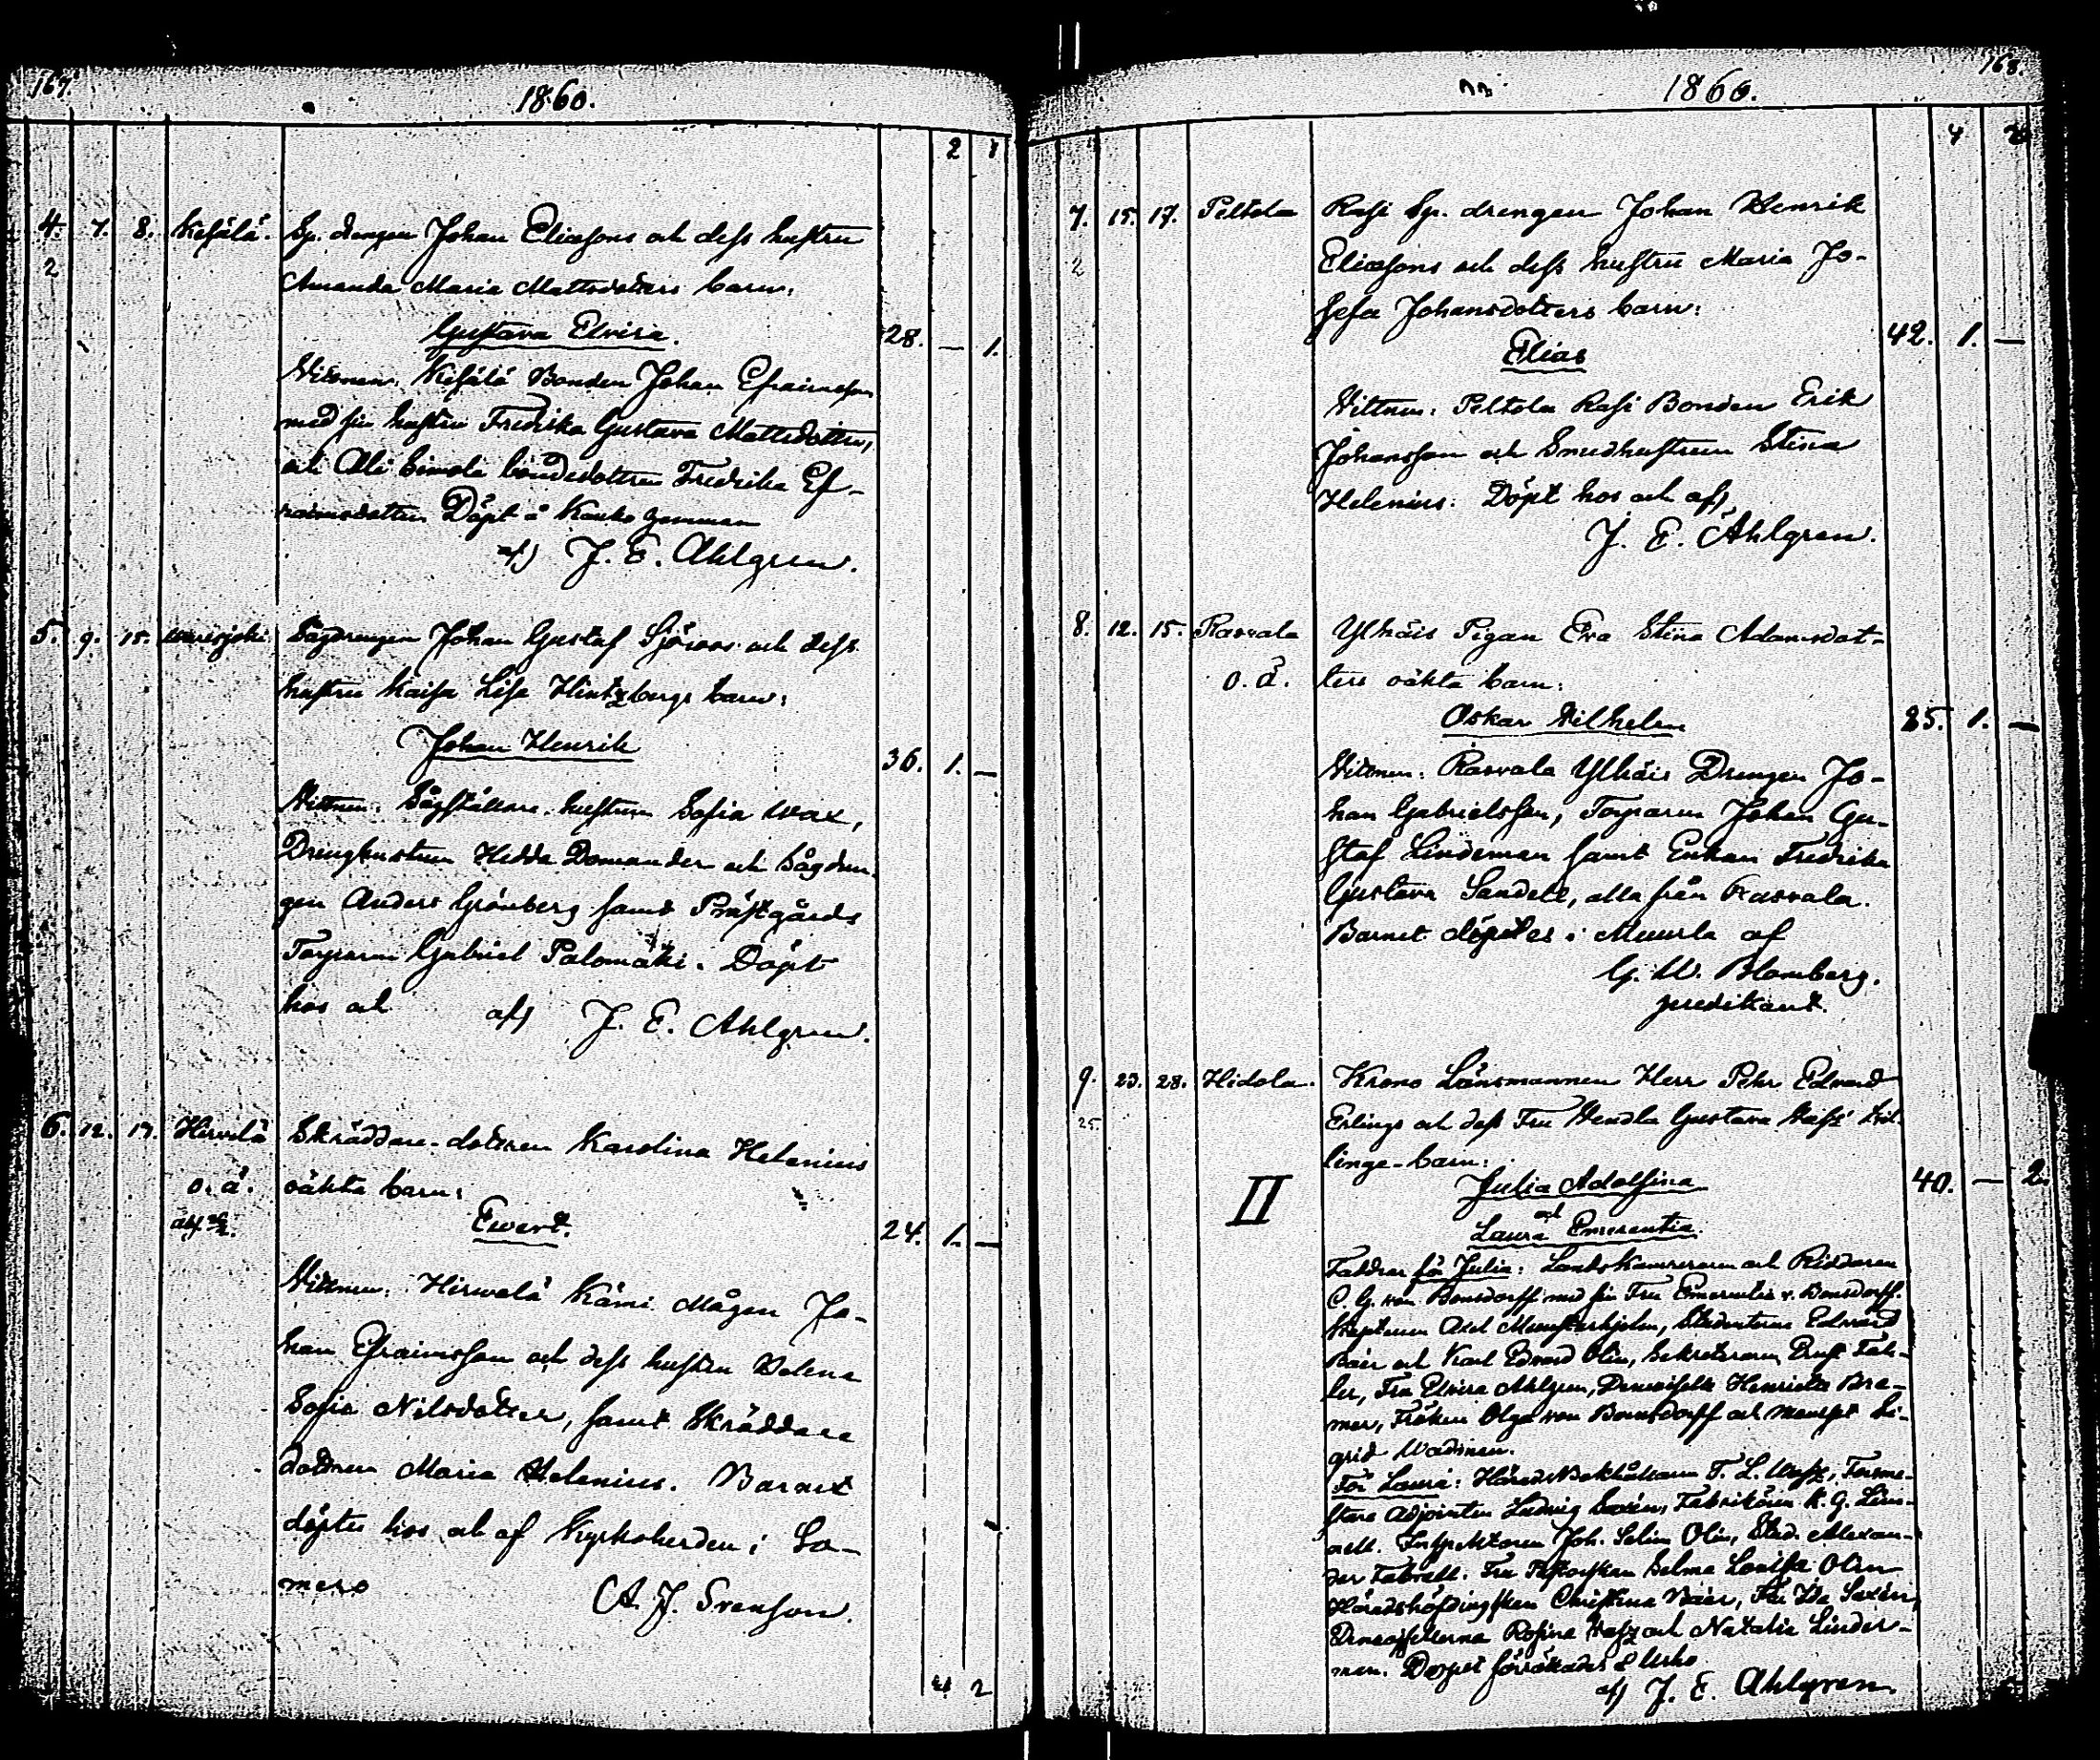 167.
1860.
2 1
4. 7. 8. Kesälä. Sp. drengen Johan Eliæsons och dess hustru
2 Amanda Maria Mattsdotters barn:
Gustava Elvira. 28. — 1.
Vittnen: Kesälä Bonden Johan Efraimsson
med sin hustru Fredrika Gustava Mattsdotter,
och bondedottren Fredrika Ef-
raimsdotter. Döpt å
af) J. E. Ahlgren.
5. 9. 15. Sågdrengen Johan Gustaf Sjöroos och dess
hustru Kaisa Lisa Hintzbergs barn:
Johan Henrik 36. 1. —
Vittnen: Sågställare hustrun Sofia Wax,
Drenghustrun Hedda Domander och Sågdren-
gen Anders Grönberg samt Prästgårds
Torparen Gabriel Palomäki. Döpt
hos och af) J. E. Ahlgren.
6. 12. 17. Hirvelä Skräddare-dottren Karolina Helenius
o. ä. oäkta barn:
Evert. 24. 1. —
Vittnen: Hirwelä Kämi Mågen Jo-
han Efraimsson och dess hustru Helena
Sofia Nilsdotter, samt Skräddare
dottren Maria Helenius. Barnet
döptes hos och af Kyrkoherden i So-
mero A. J. Svenson.
4 2
168.
1860.
4 2
7. 15. 17. Peltola Rasi Sp. drengen Johan Henrik
2 Eliæsons och dess hustru Maria Jo-
sefa Johansdotters barn:
Elias 42. 1. —
Vittnen: Peltola Rasi Bonden Erik
Johansson och Smedhustrun Stina
Helenius. Döpt hos och af)
J. E. Ahlgren.
8. 12. 15. Rasvala Ylhäis Pigan Eva Stina Adamsdot-
o. ä. ters oäkta barn:
Oskar Vilhelm 25. 1. —
Vittnen: Rasvala Ylhäis Drengen Jo-
han Gabrielsson, Torparen Johan Gu-
staf Lindeman samt Enkan Fredrika
Gustava Sandell, alla från Rasvala.
Barnet döptes i Muurla af
G. W. Blomberg.
predikant.
9. 23. 28. Hidola. Krono Länsmannen Herr Pehr Edvard
25. Erlings och dess Fru Hendla Gustava Tvil-
linge-barn:
II Julia Adolfina 40. — 2.
och
Laura Emerentia.
Faddrar för Julia: Landskamreraren och Riddaren
C. G. von Bonsdorff med sin Fru Emerentia v. Bonsdorff.
Kaptenen Axel Munsterhjelm, Studenterne Edvard
Bäer och Karl Edvard Olin, Sekreteraren Ernst Fah-
ler, Fru Elvira Ahlgren, Demoiselle Henriette Bre-
mer, Fröken Olga von Bonsdorff och Mamsel Si-
grid Wadsman.
För Laura: HäradsBokhållaren T. L. Forstme-
stare Adjointen Ludvig Saxén, Fabrikören K. G. Lin-
dell. Inspektoren Joh. Selim Olin, Stud. Alexan-
der Fabrell. Fru Pastorskan Selma Lovisa Olin
Häradshöfdingskan Christina Bäer, Fru Ida Saxén,
Demoisellerna Rosina och Natalia Linder-
man. Dopet förrättades å
af) J. E. Ahlgren.